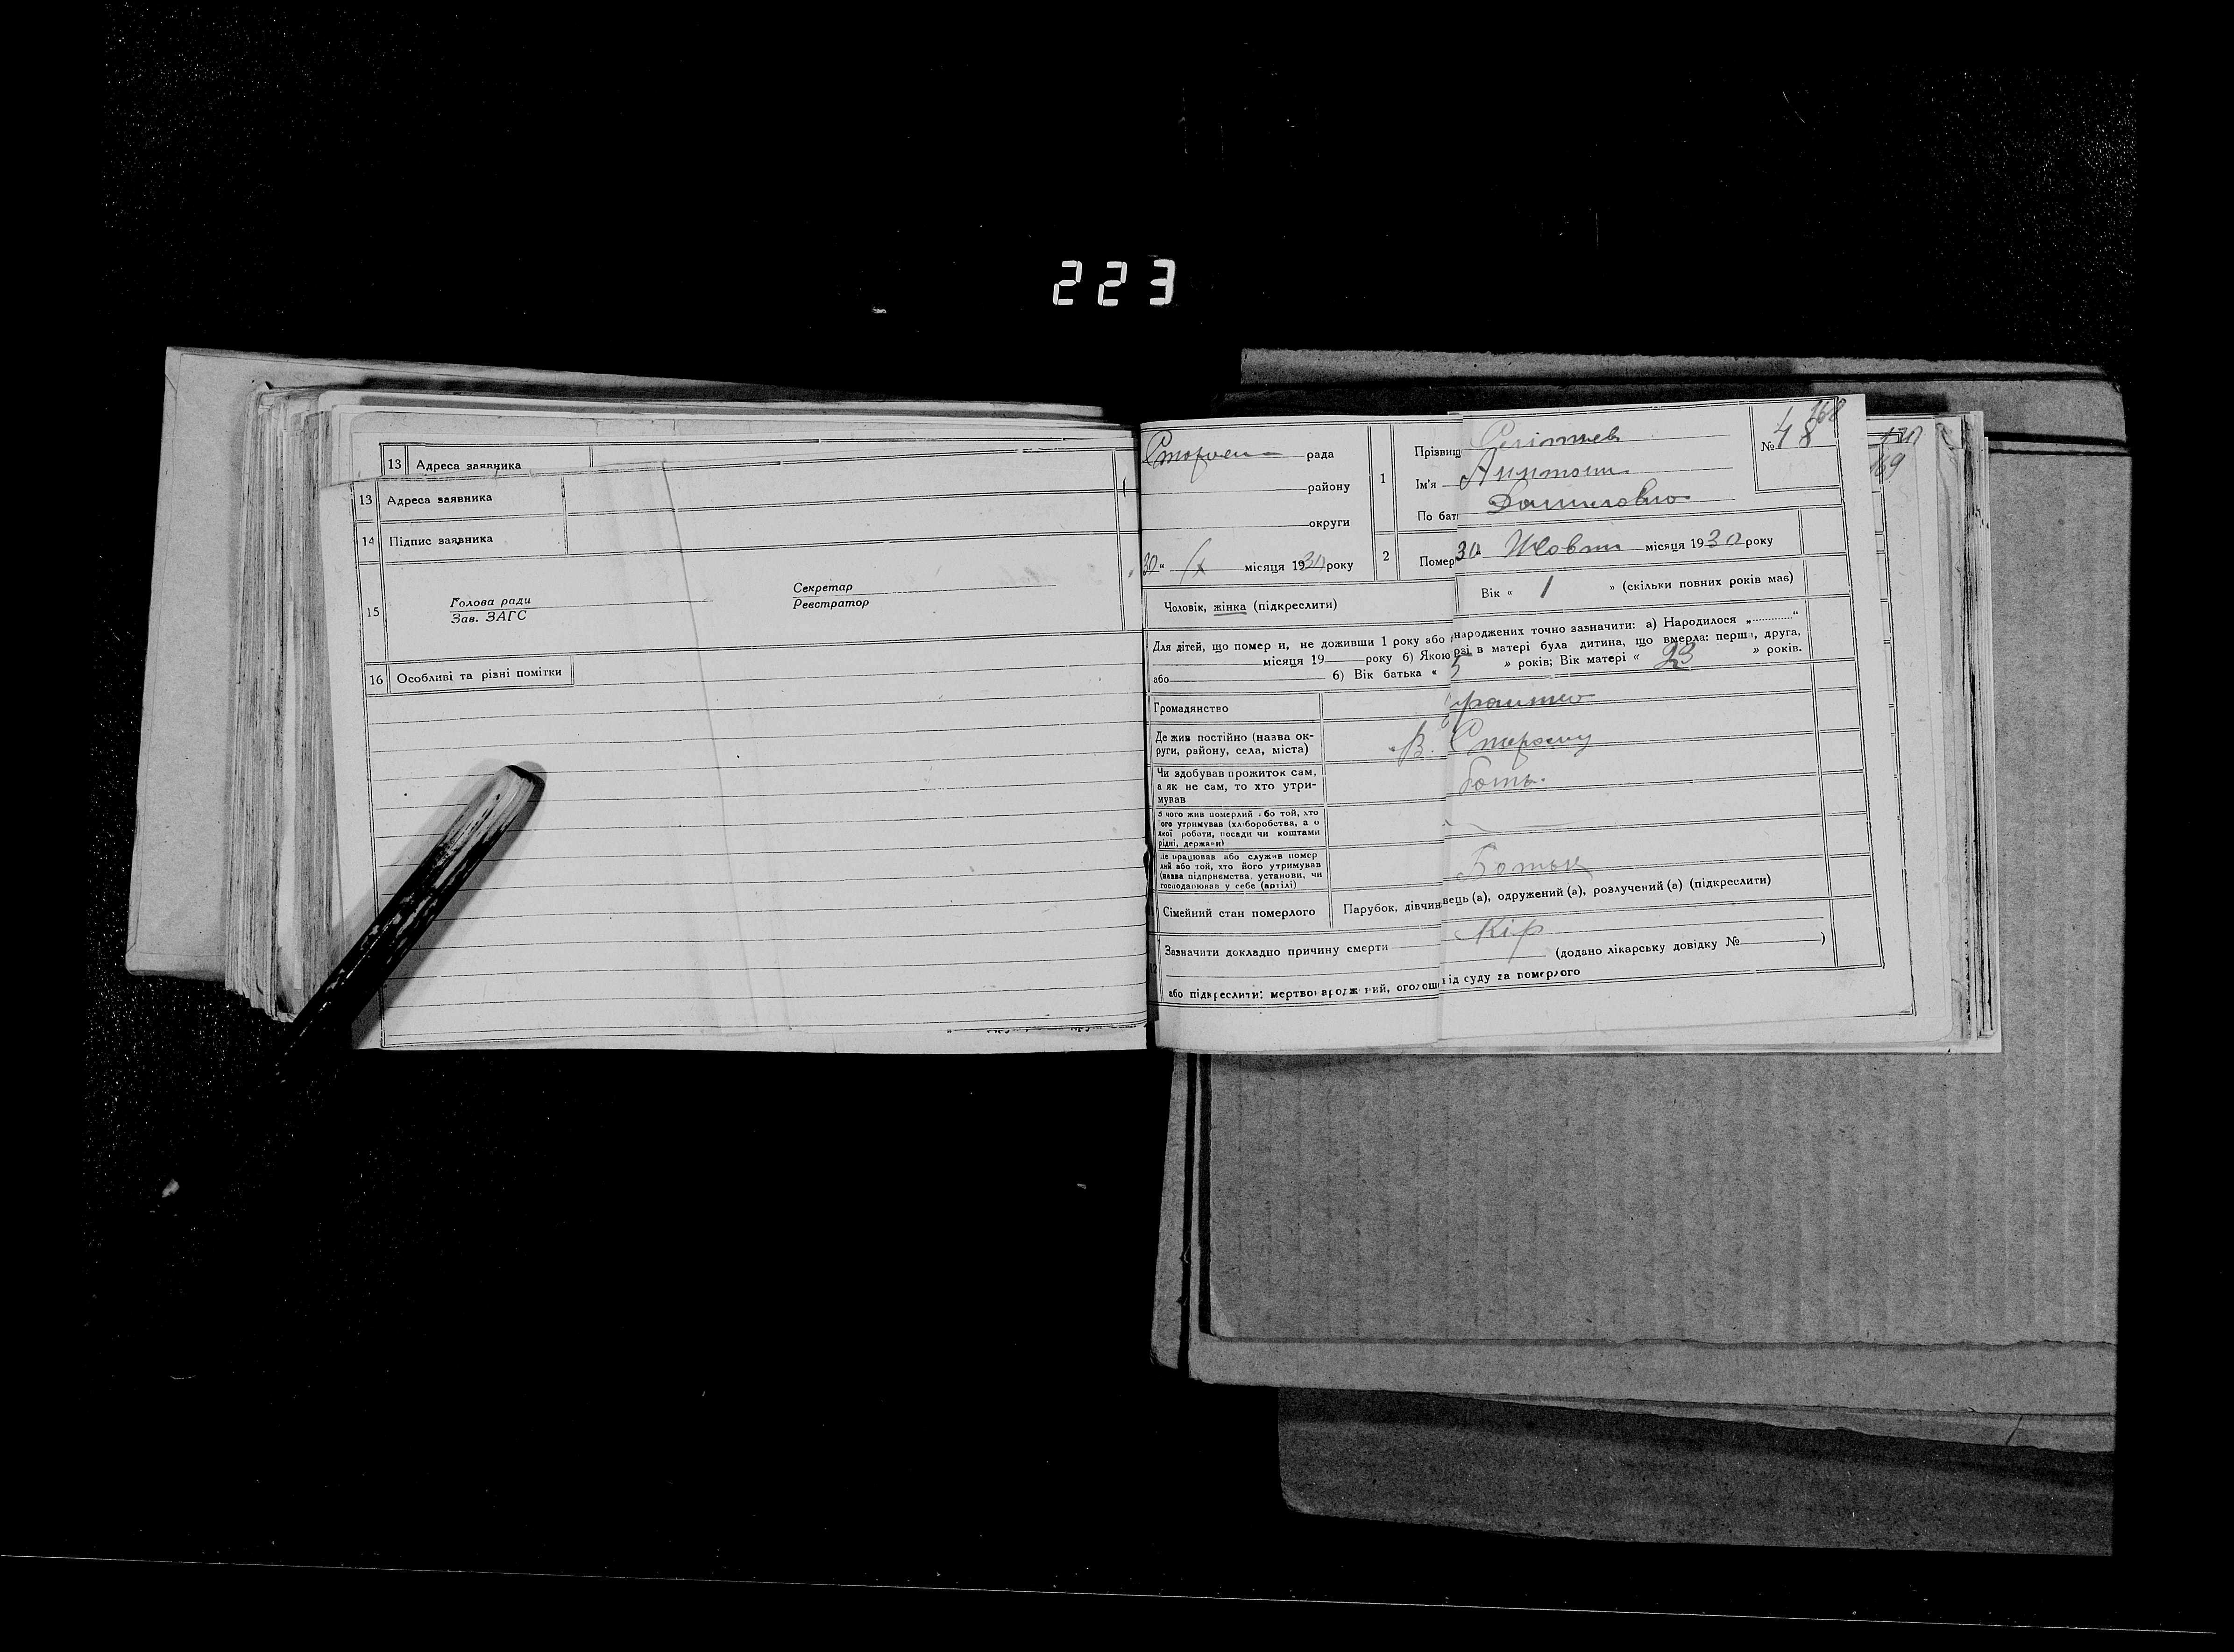 223
13 Адреса заявника
13 Адреса заявника
14 Підпис заявника
15 Голова ради
Зав. ЗАГС
Секретар
Реєстратор
16 Особливі та різні помітки
рада
району
округи
30 " місяця 1930 року
1 Прізвищ
Ім'я
По бат
№ 48
168
169
2 Помер 30 Жовтн місяця 1930 року
Чоловік, жінка (підкреслити)
Вік « 1 » (скільки повних років має)
Для дітей, що помер и, не доживши 1 року або народжених точно зазначити: а) Народилося „ “
місяця 19 року б) Якою рзі в матері була дитина, що вмерла: перша, друга,
або б) Вік батька « 5 » років; Вік матері « 23 » років.
Громадянство
Де жив постійно (назва ок-
руги, району, села, міста)
Чи здобував прожиток сам,
а як не сам, то хто утри-
мував
бать.
З чого жив померлий або той, хто
ого утримував (хліборобства, а о
якої роботи, посади чи коштами
рідні, держави)
Де працював або служив помер
лий або той, хто його утримував
(назва підприємства, установи, чи
господарював у себе (артілі)
Батьк
Сімейний стан померлого
Парубок, дівчин вець (а), одружений (а), розлучений (а) (підкреслити)
Зазначити докладно причину смерти Кір
(додано лікарську довідку № )
або підкреслити: мертвонароджений, оголош ід суду за померлого